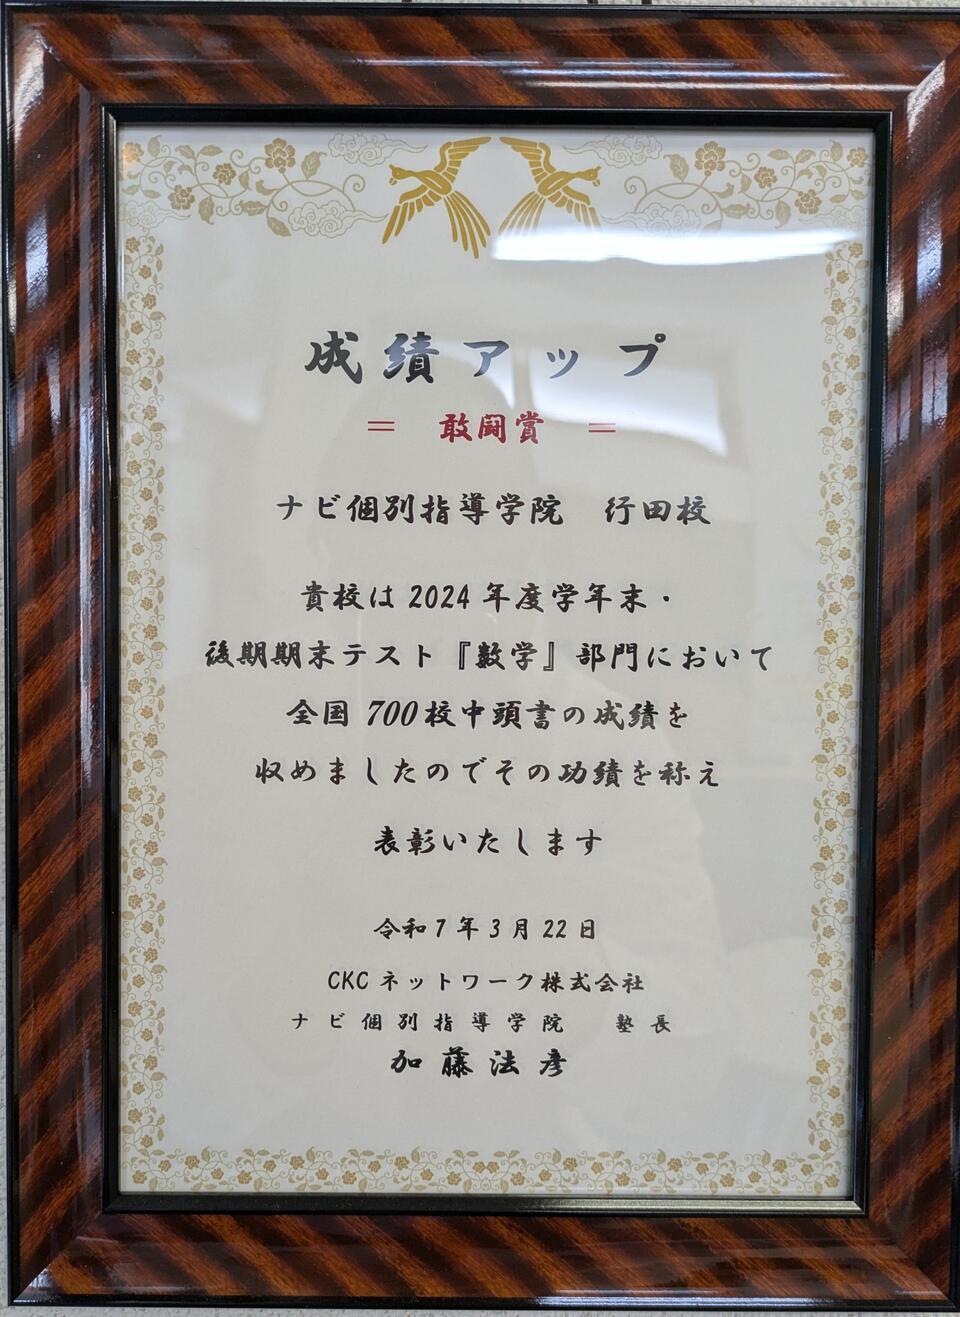 成績アップ
＝　敢闘賞　＝
ナビ個別指導学院　行田校
貴校は2024年度学年末・
後期期末テスト『数学』部門において
全国700校中頭書の成績を
収めましたのでその功績を称え
表彰いたします
令和7年3月22日
CKCネットワーク株式会社
ナビ個別指導学院　塾長
加藤法彦